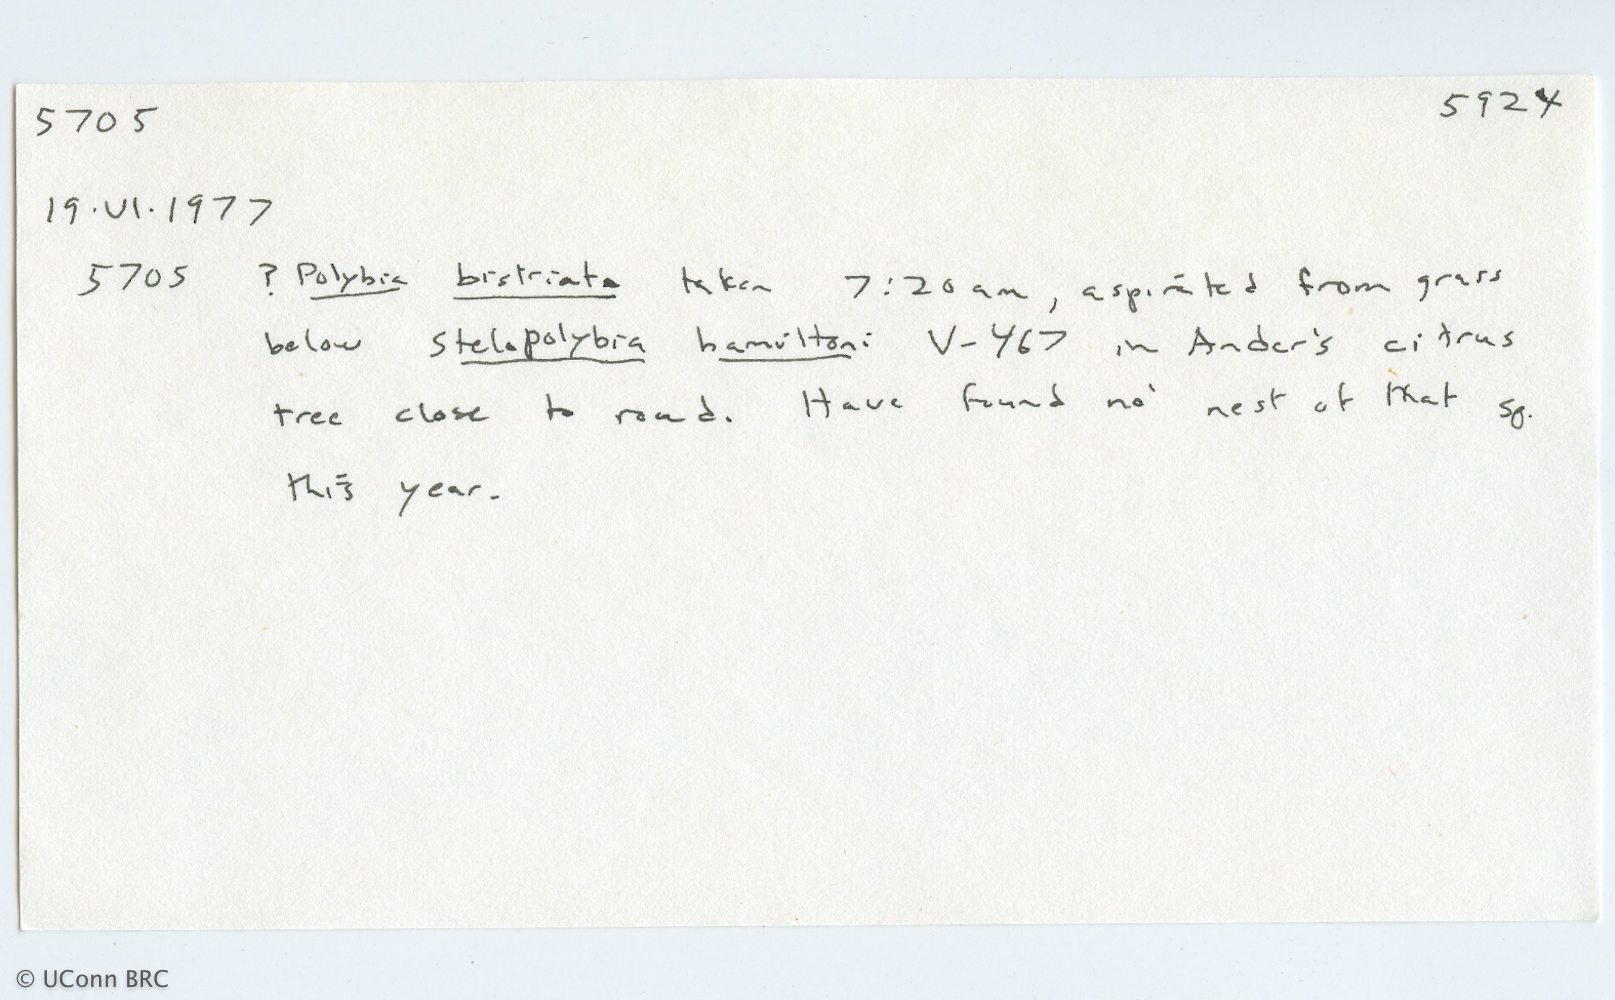 5705
5924
19.VI.1977
5705 ? Polybia bistriata taken 7:20 am, aspirated from grass
below Stelopolybia hamiltoni V-467 in Ander's citrus
tree close to road. Have found no nest of that sp.
this year.
© UConn BRC